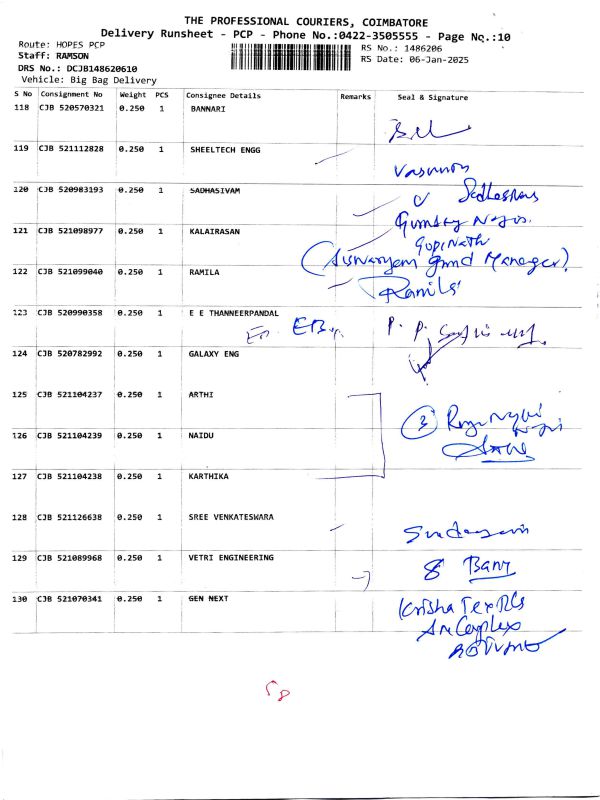 THE PROFESSIONAL COURIERS, COIMBATORE
Delivery Runsheet - PCP - Phone No.:0422-3505555 - Page No.:10
Route: HOPES PCP
RS No.: 1486206
Staff: RAMSON
RS Date: 06-Jan-2025
DRS No.: DCJB148620610
Vehicle: Big Bag Delivery
S No Consignment No Weight PCS Consignee Details Remarks Seal & Signature
118 CJB 520570321 0.250 1 BANNARI
119 CJB 521112828 0.250 1 SHEELTECH ENGG
120 CJB 520983193 0.250 1 SADHASIVAM
121 CJB 521098977 0.250 1 KALAIRASAN
Gopinath
122 CJB 521099040 0.250 1 RAMILA
Ramila
123 CJB 520990358 0.250 1 E E THANNEERPANDAL
124 CJB 520782992 0.250 1 GALAXY ENG
125 CJB 521104237 0.250 1 ARTHI
3
126 CJB 521104239 0.250 1 NAIDU
127 CJB 521104238 0.250 1 KARTHIKA
128 CJB 521126638 0.250 1 SREE VENKATESWARA
129 CJB 521089968 0.250 1 VETRI ENGINEERING
130 CJB 521070341 0.250 1 GEN NEXT